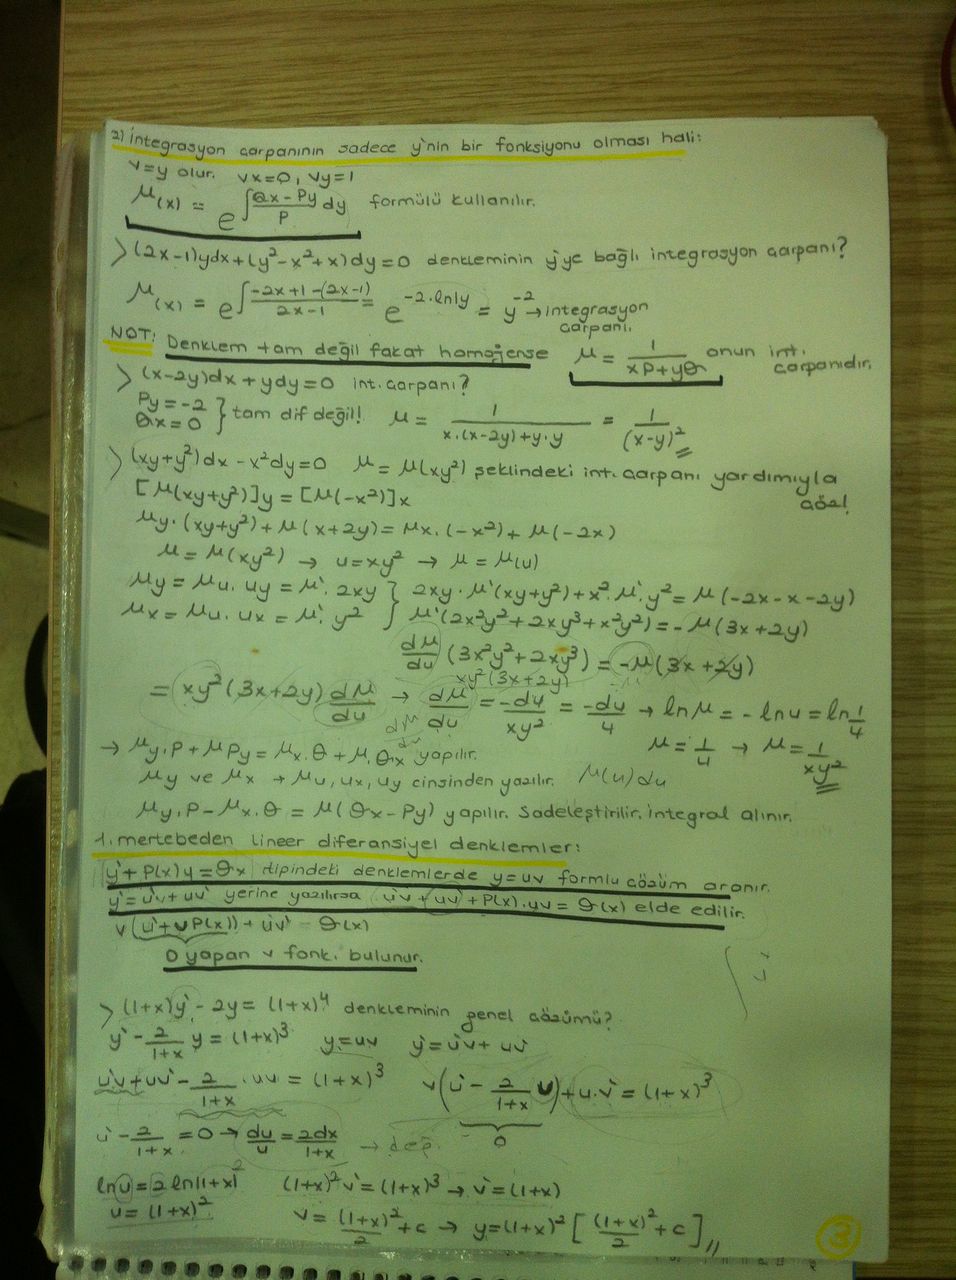 2) İntegrasyon çarpanının sadece y'nin bir fonksiyonu olması hali:
v=y olur. vx=0, vy=1
μ(x) = e^∫(Qx-Py)/P dy formülü kullanılır.
> (2x-1)ydx+(y²-x²+x)dy=0 denkleminin y'ye bağlı integrasyon çarpanı?
μ(x) = e^∫(-2x+1-(2x-1))/(2x-1) = e^-2.ln|y = y^-2 → integrasyon çarpanı.
NOT: Denklem tam değil fakat homojense μ = 1/(xP+yQ) onun int. çarpanıdır.
> (x-2y)dx+ydy=0 int. çarpanı?
Py=-2
Qx=0 } tam dif değil! μ = 1/(x.(x-2y)+y.y) = 1/(x-y)²
> (xy+y²)dx-x²dy=0 μ=μ(xy²) şeklindeki int. çarpanı yardımıyla çöz!
[μ(xy+y²)]y=[μ(-x²)]x
μy.(xy+y²)+μ(x+2y)=μx.(-x²)+μ(-2x)
μ=μ(xy²) → u=xy² → μ=μ(u)
μy=μu.uy=μ'.2xy } 2xy.μ'(xy+y²)+x².μ'.y²=μ(-2x-x-2y)
μx=μu.ux=μ'.y² } μ'(2x²y²+2xy³+x²y²)=-μ(3x+2y)
dμ/du (3x²y²+2xy³)=-μ(3x+2y)
xy²(3x+2y)
= xy²(3x+2y) dμ/du → dμ/du = -du/xy² = -du/u → lnμ=-lnu=ln1/u
μ=1/u → μ=1/xy²
→ μy.P+μPy=μx.Q+μ.Qx yapılır.
μy ve μx → μu, ux, uy cinsinden yazılır. μ(u)du
μy.P-μx.Q=μ(Qx-Py) yapılır. Sadeleştirilir, integral alınır.
1. mertebeden lineer diferansiyel denklemler:
y'+P(x)y=Qx tipindeki denklemlerde y=uv formlu çözüm aranır.
y'=u'v+uv' yerine yazılırsa u'v+uv'+P(x).uv=Q(x) elde edilir.
v(u'+uP(x))+uv'=Q(x)
0 yapan v fonk. bulunur.
> (1+x)y'-2y=(1+x)⁴ denkleminin genel çözümü?
y'-2/(1+x) y=(1+x)³ y=uv y'=u'v+uv'
u'v+uv'-2/(1+x).uv=(1+x)³ v(u'-2/(1+x) u)+u.v'=(1+x)³
0
u'-2/(1+x)=0 → du/u=2dx/(1+x) → değ.
lnu=2ln|1+x|² (1+x)²v'=(1+x)³ → v'=(1+x)
u=(1+x)² v=(1+x)²/2+c → y=(1+x)²[(1+x)²/2+c]
3